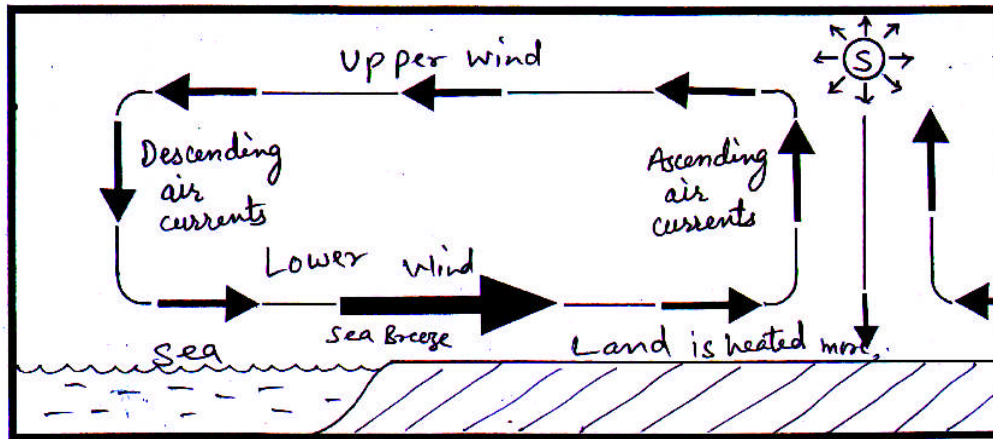 Upper wind
S
Descending
air
currents
Ascending
air
currents
Lower Wind
Sea Breeze
Sea
Land is heated more,